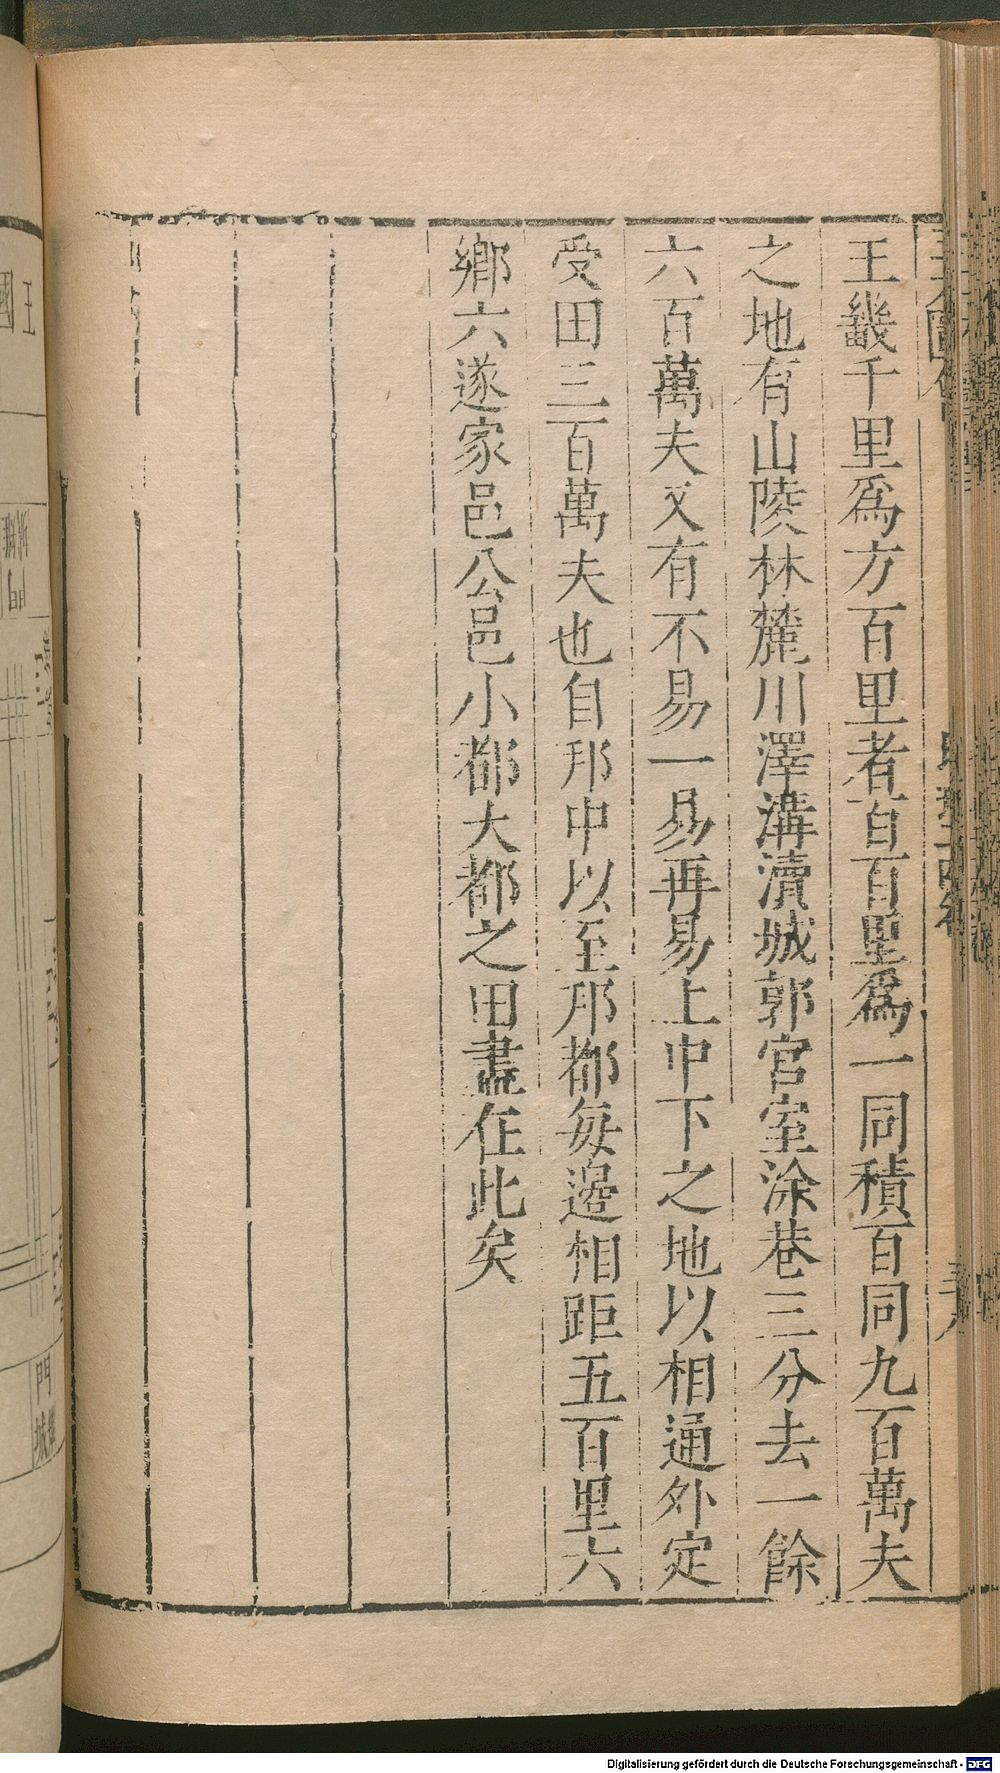 王畿千里爲方百里者百百里爲一同積百同九百萬夫
之地有山陵林麓川澤溝瀆城郭宮室涂巷三分去一餘
六百萬夫又有不易一易再易上中下之地以相通外定
受田三百萬夫也自邦中以至邦都每邊相距五百里六
鄉六遂家邑公邑小都大都之田盡在此矣
王國
門
門
城
Digitalisierung gefördert durch die Deutsche Forschungsgemeinschaft - DFG